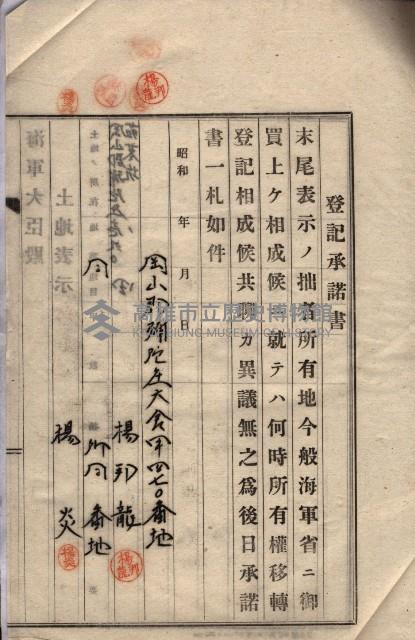 登記承諾書
末尾表示ノ拙者所有地今般海軍省ニ御
買上ケ相成候ニ就テハ何時所有權移轉
登記相成候共聊カ異議無之爲後日承諾
書一札如件
昭和 年 月 日
岡山郡彌陀庄大舍甲四七〇番地
楊邦龍
仝 所仝番地
楊炎
海軍大臣殿
土地表示
高雄市立歷史博物館
KAOHSIUNG MUSEUM OF HISTORY